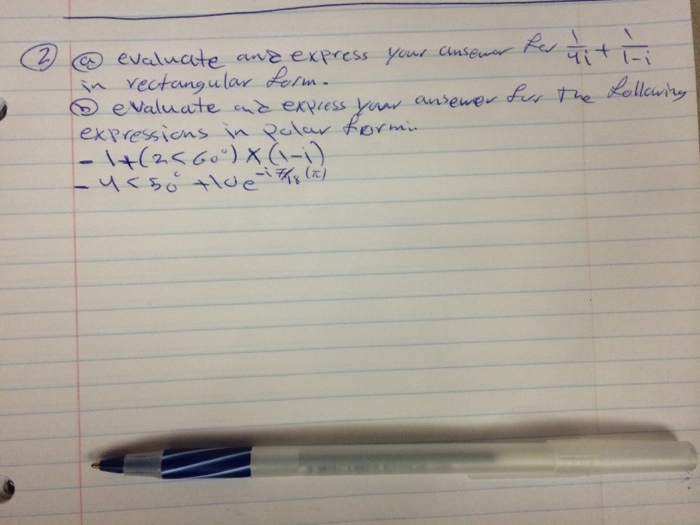 ② ⓐ evaluate and express your answer for 1/4i + 1/1-i
in rectangular form.
ⓑ evaluate and express your answer for the following
expressions in polar form:
- 1+(2<60°)×(1-i)
- 4<50° +10e^-i 7/18 (π)